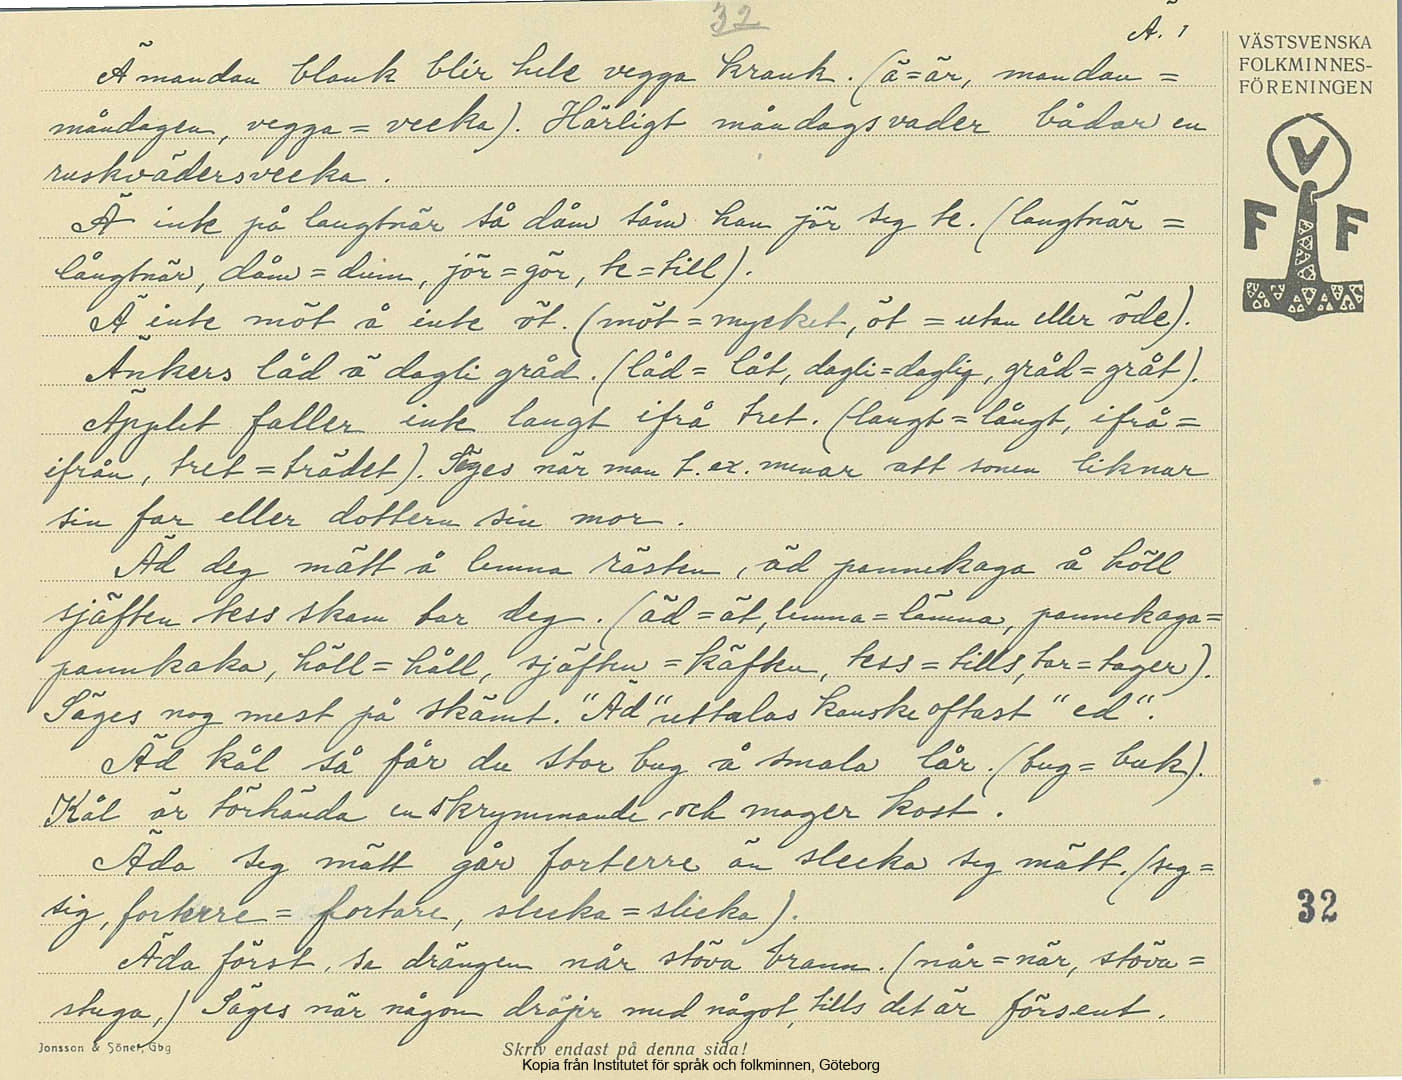 32
Ä. 1
Ä mandan blank blir hele vegga krank. (ä=är, mandan =
måndagen, vegga = vecka). Härligt måndagsväder bådar en
ruskvädersvecka.
Ä ink på langtnär så dåm såm han jör seg te. (langtnär =
långtnär, dåm = dum, jör = gör, te = till).
Ä inte möt å inte öt. (möt = mycket, öt = utan eller öde).
Änkers låd ä dagli gråd. (låd = låt, dagli = daglig, gråd = gråt).
Äpplet faller ink langt ifrå tret. (langt = långt, ifrå =
ifrån, tret = trädet). Säges när man t. ex. menar att sonen liknar
sin far eller dottern sin mor.
Äd deg mätt å lemna rästen, äd pannekaga å höll
sjäften tess skam tar deg. (äd = ät, lemna = lämna, pannekaga =
pannkaka, höll = håll, sjäften = käften, tess = tills, tar = tager).
Säges nog mest på skämt. "Äd" uttalas kanske oftast "ed".
Äd kål så får du stor bug å smala lår. (bug = buk).
Kål är törhända en skrymmande och mager kost.
Äda seg mätt går forterre än slecka seg mätt. (seg =
sig, forterre = fortare, slecka = slicka).
Äda först, sa drängen når stöva brann. (når = när, stöva =
stuga,) Säges när någon dröjer med något, tills det är försent.
VÄSTSVENSKA
FOLKMINNES-
FÖRENINGEN
V
F F
32
Jonsson & Söner, Gbg
Skriv endast på denna sida!
Kopia från Institutet för språk och folkminnen, Göteborg